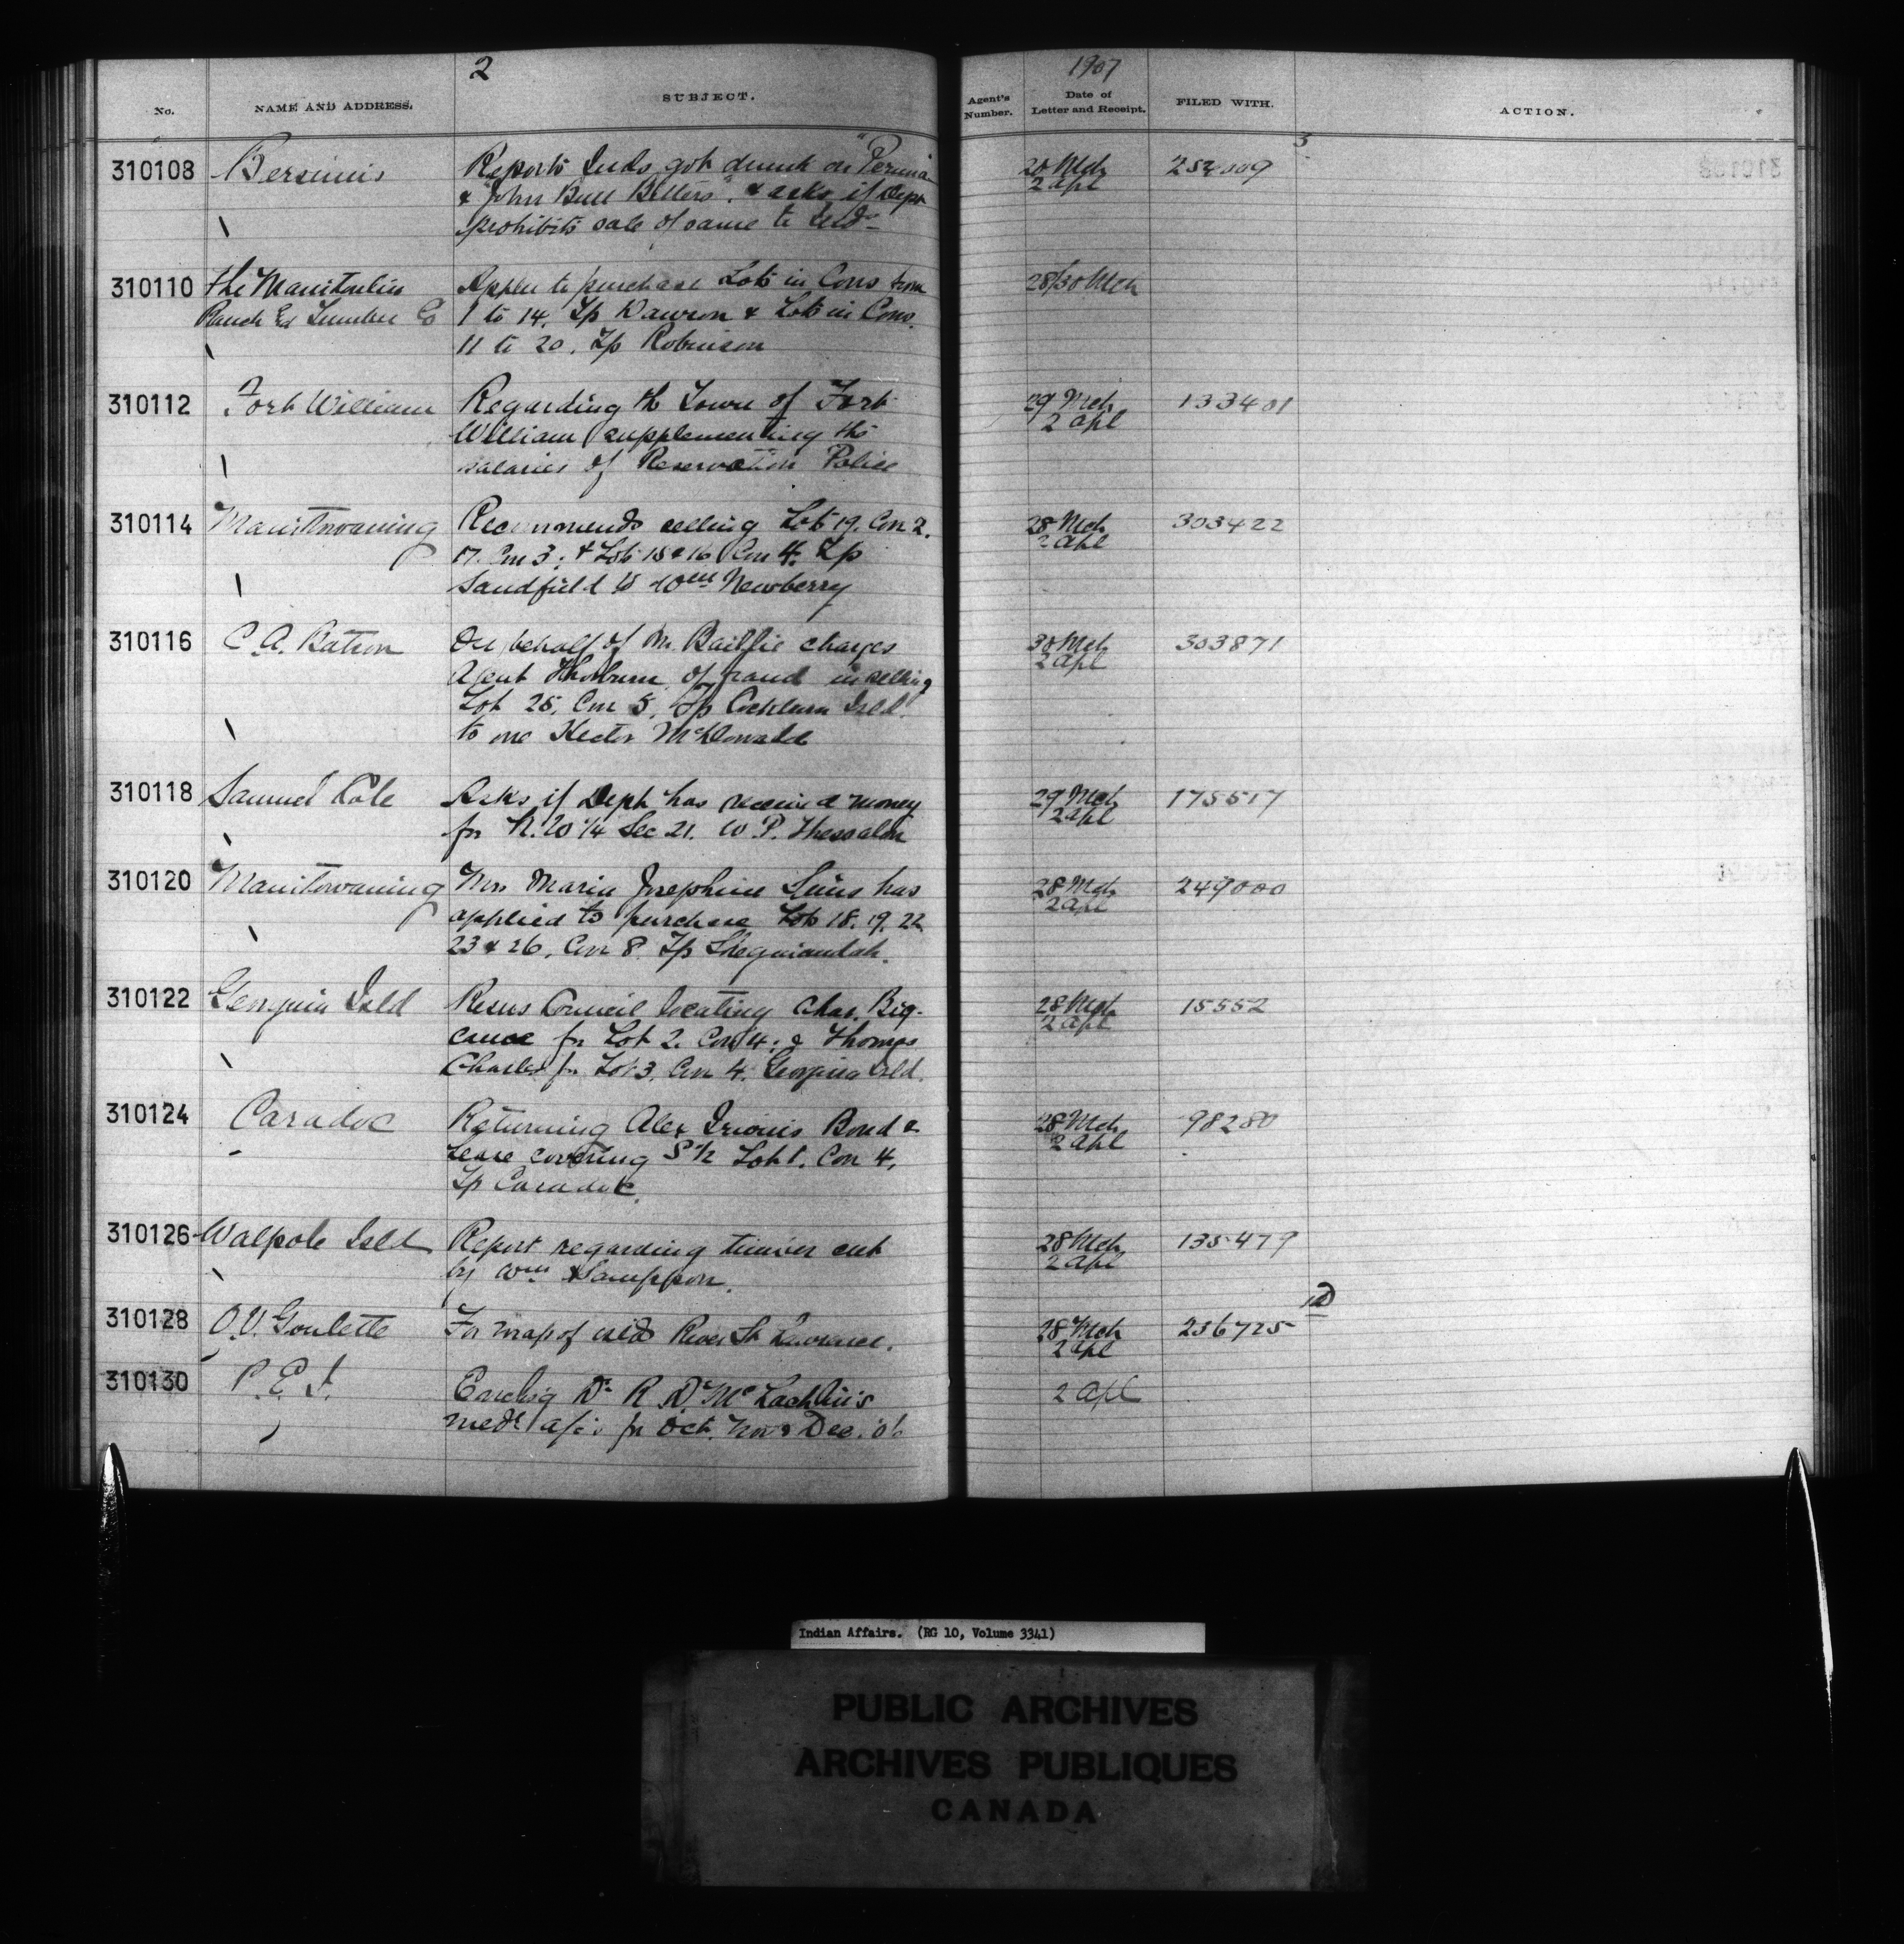 2
1907
No. NAME AND ADDRESS. SUBJECT. Agent's Number. Date of Letter and Receipt. FILED WITH. ACTION.
3
310108 Bersimis Reports Inds got drunk on "Peruna 20 Mch 254009
& "John Bull Bitters". & asks if Dept 2 apl
prohibits sale of same to Inds
310110 The Manitoulin Appln to purchase Lots in Cons from 28/30 Mch
Ranch & Lumber Co 1 to 14, Tp Dawson & Lots in Cons.
11 to 20, Tp Robinson
310112 Fort William Regarding the Town of Fort 29 Mch 133401
William supplementing the 2 apl
salaries of Reservation Police
310114 Manitowaning Recommends selling Lots 19. Con 2. 28 Mch 303422
17. Con 3; & Lots 15 & 16 Con 4. Tp 2 apl
Sandfield to Wm Newberry
310116 C. A. Batson On behalf of Mr. Baillie charges 30 Mch 303871
Agent Thorburn of fraud in selling 2 apl
Lot 25, Con 5, Tp Cockburn Isld.
to one Hector McDonald
310118 Samuel Cole Asks if Dept has received money 29 Mch 175517
for N.W 1/4 Sec 21. W. P. Thessalon 2 apl
310120 Manitowaning Mrs Maria Josephine Sims has 28 Mch 249000
applied to purchase Lots 18. 19. 22 2 apl
23 & 26, Con 8 Tp Sheguiandah.
310122 Georgina Isld Resns Council locating Chas. Big- 28 Mch 15552
canoe for Lot 2. Con 4; & Thomas 2 apl
Charles for Lot 3. Con 4. Georgina Isld.
310124 Caradoc Returning Alex Irions Bond & 28 Mch 98280
Lease covering S 1/2 Lot 1. Con 4, 2 apl
Tp Caradoc.
310126 Walpole Isld Report regarding timber cut 28 Mch 135479
by Wm Sampson. 2 apl
310128 O.V. Goulette For map of islds River St Lawrence. 28 Mch 236725
2 apl
310130 P. E. I. Enclsg Dr R. D. McLachlin's 2 apl
medl a/cs for Oct. Nov & Dec. '06
Indian Affairs. (RG 10, Volume 3341)
PUBLIC ARCHIVES
ARCHIVES PUBLIQUES
CANADA